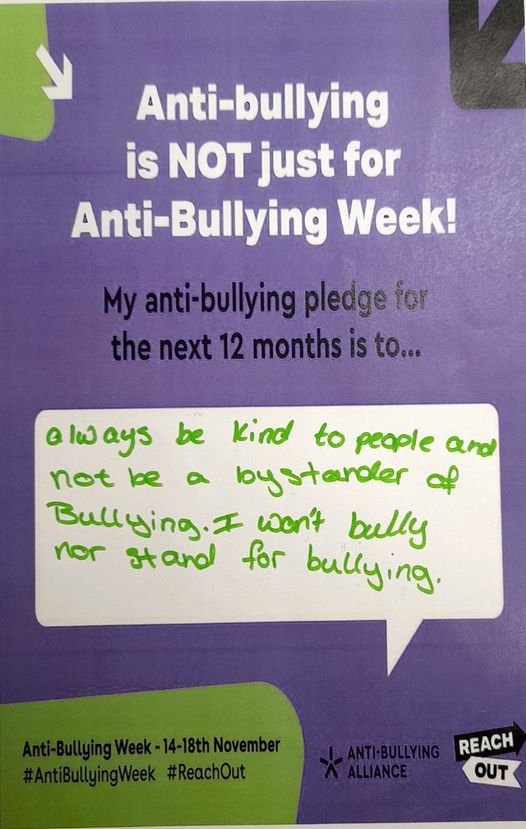 Anti-bullying
is NOT just for
Anti-Bullying Week!
My anti-bullying pledge for
the next 12 months is to...
always be kind to people and
not be a bystander of
Bullying. I won't bully
nor stand for bullying.
Anti-Bullying Week - 14-18th November
#AntiBullyingWeek #ReachOut
ANTI-BULLYING
ALLIANCE
REACH
OUT